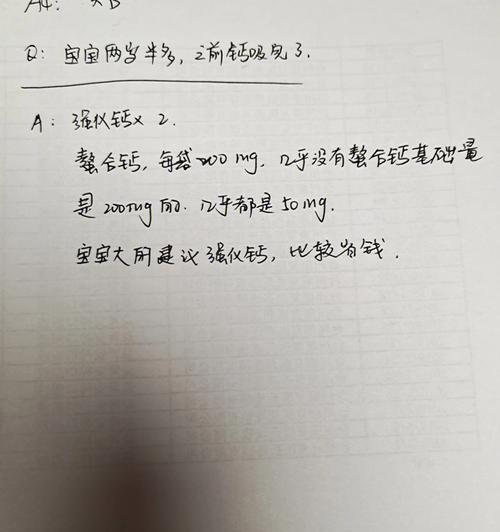 A4: XB
Q: 宝宝两岁半多, 之前钙吸完了.
A: 强仪钙x 2.
螯合钙, 每袋200mg. 几乎没有螯合钙基础量
是200mg的. 几乎都是50mg.
宝宝大用建议强仪钙, 比较省钱.